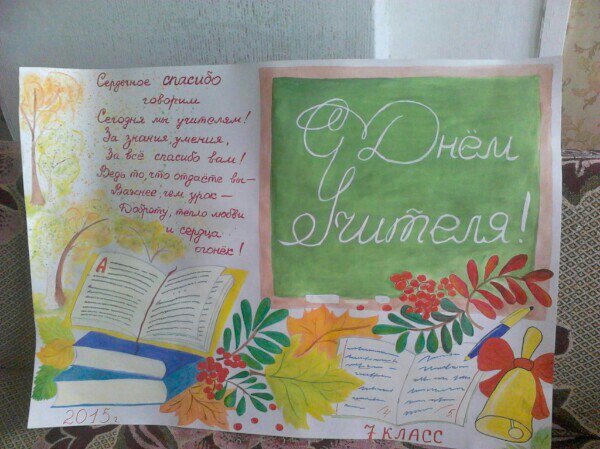 Сердечное спасибо
говорим
Сегодня мы учителям!
За знания, умения,
За всё спасибо вам!
Ведь то, что отдаёте вы—
Важнее, чем урок—
Доброту, тепло любви
и сердца
огонёк!
С Днём
Учителя!
А
4
5
2015г
7 КЛАСС